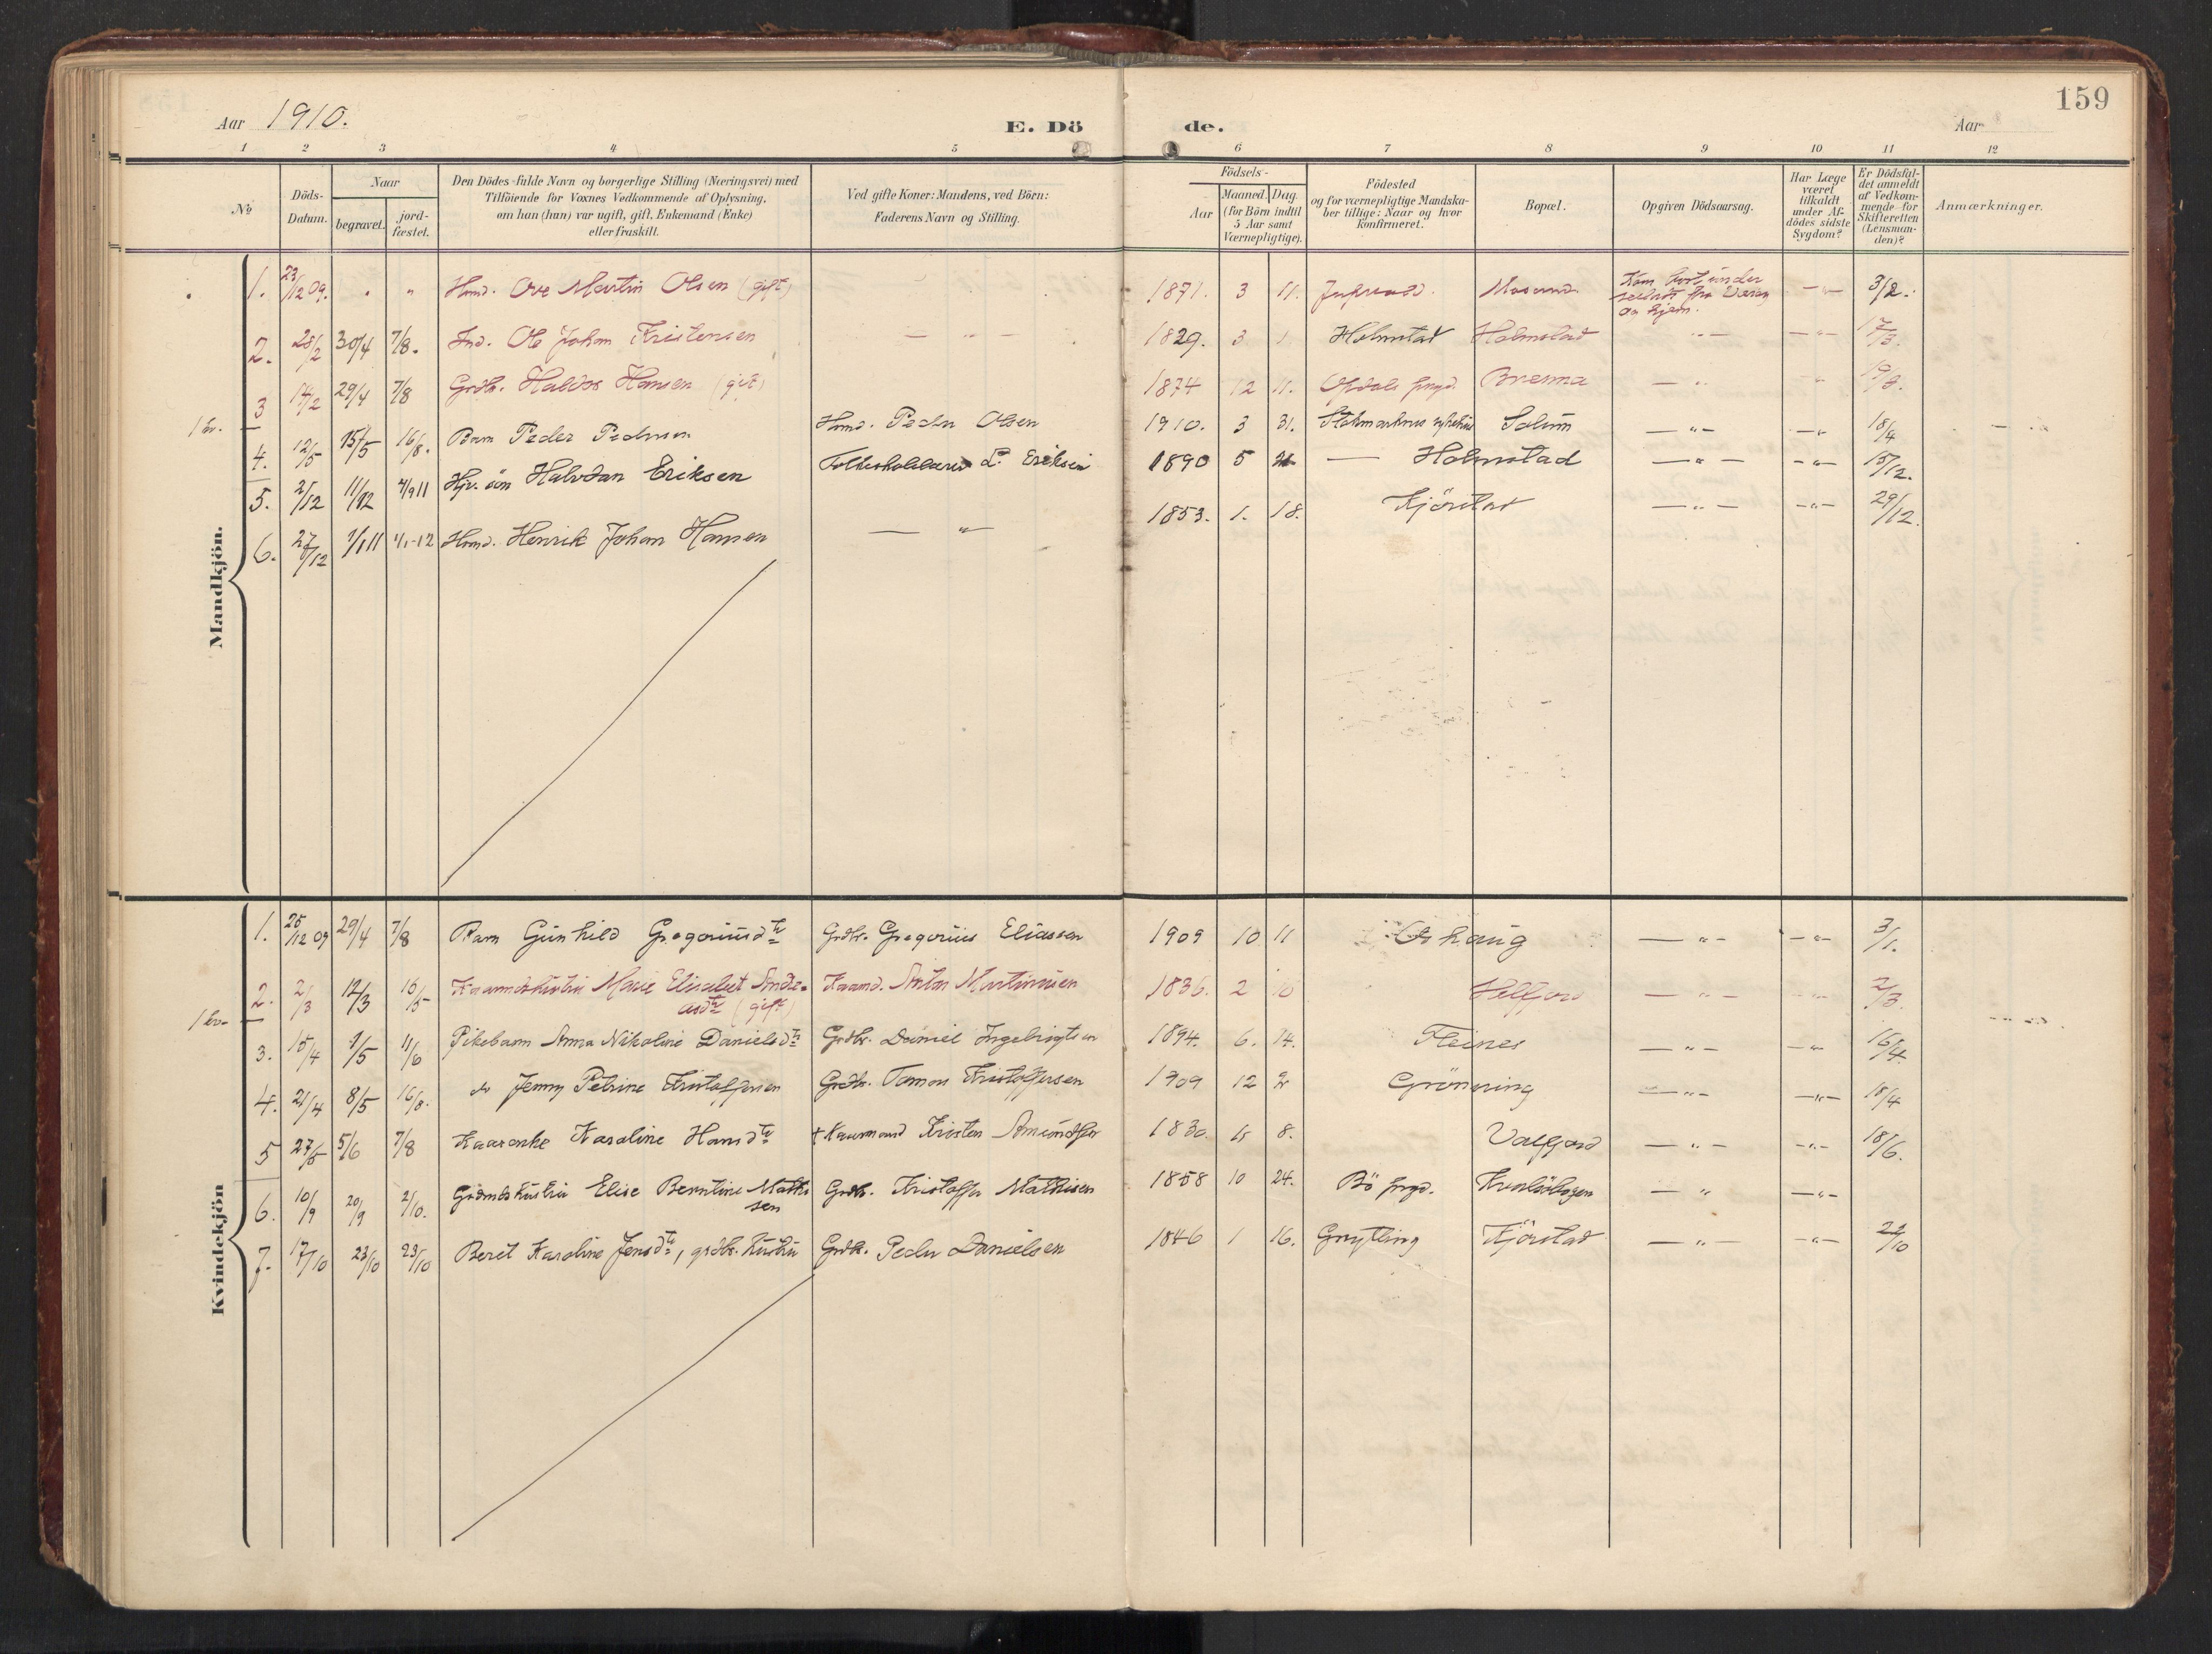 159
Aar 1910.
E. Dö de.
Aar
1 2 3 4 5 6 7 8 9 10 11 12
No
Döds-Datum.
Naar
begravet.
jord-fæstet.
Den Dödes fulde Navn og borgerlige Stilling (Næringsvei) med
Tilföiende for Voxnes Vedkommende af Oplysning,
om han (hun) var ugift, gift, Enkemand (Enke)
eller fraskilt.
Ved gifte Koner: Mandens, ved Börn:
Faderens Navn og Stilling.
Födsels-
Aar
Maaned. Dag.
(for Börn indtil
5 Aar samt
Værnepligtige).
Födested
og for værnepligtige Mandska-
ber tillige: Naar og hvor
konfirmeret.
Bopæl.
Opgiven Dödsaarsag.
Har Læge
været
tilkaldt
under Af-
dödes sidste
Sygdom?
Er Dödsfal-
det anmeldt
af Vedkom-
mende for
Skifteretten
(Lensman-
den)?
Anmærkninger.
Mandkjön.
1. 23/12 09. " " Hmd. Ove Martin Olsen (gift) 1871. 3 11. Masund. Kom bort under seilads fra og hjem. — " — 3/2.
2. 28/2 30/4 7/8. Ind. Ole Johan Kristensen — " — 1829. 3 1 Holmstad Holmstad " — — " — 17/3.
3 14/2 29/4 7/8 Grdbr. Haldor Hansen (gift) 1874 12 11. Opdals prgd. Brenna — " " 19/3.
1 kv.
4. 12/5 15/5 16/8. Barn Peder Pedersen Hmd. Peder Olsen 1910. 3 31. Stokmarknes sykehus Solum — " — — " — 18/4
5. 2/12 11/12 4/9 11 Hjv. sön Halvdan Eriksen L. Eriksen 1890 5 — Holmstad — " — — " — 15/12.
6. 27/12 1/1 11 4/1-12 Hmd. Henrik Johan Hansen — " — 1853. 1. 18. Kjörstad — " — — " — 29/12.
Kvindekjön
1. 25/12 09 29/4 7/8 Barn Gunhild Gregoriusdtr Grdbr. Gregorius Eliassen 1909 10 11 Åshaug — " — — " — 3/1.
2. 2/3 12/3 16/5 Kaarmdshustru Marie Elisabet Andre- Kaarmd. Anton Martinusen 1836. 2 10 Helfjord — " — 2/3.
asdtr (gift)
1 kv.
3. 15/4 1/5 11/6 Pikebarn Anna Nikoline Danielsdtr Grdbr. Daniel Ingebrigtsen 1894. 6. 14. Fleines — " — — " — 16/4.
4. 21/4 8/5 16/8. do Jenny Petrine Kristoffersen Grdbr. Tomas Kristoffersen 1909 12 2 Grönning — " — — " — 18/4
5 27/5 5/6 7/8 Kaarenke Karoline Hansdtr + Kaarmand Kristen 1830. 8. Valfjord — " — — " — 18/6.
6. 10/9 20/9 2/10. Grdmdshustru Elise Berntine Mathi Grdbr. Kristoffer Mathisen 1858 10 24. Bö prgd. — " — " —
sen
7. 17/10 23/10 23/10 Beret Karoline Jensdtr, grdbr. hustru Grdbr. Peder Danielsen 1846 1 16. Grytting Kjörstad — " — — " — 22/10